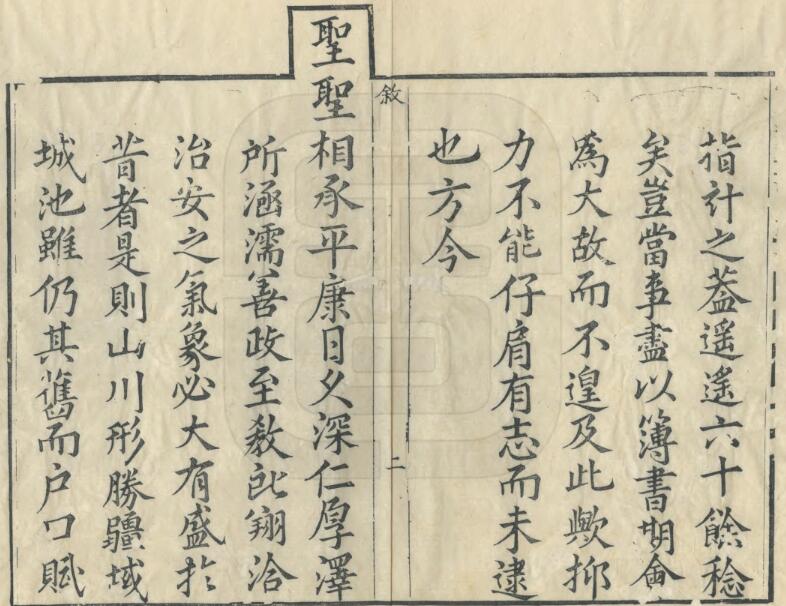 指計之葢遥遥六十餘稔
矣豈當事盡以簿書期會
爲大故而不遑及此歟抑
力不能仔肩有志而未逮
也方今
敘
二
聖聖相承平康日久深仁厚澤
所涵濡善政至敎所翔洽
治安之氣象必大有盛於
昔者是則山川形勝疆域
城池雖仍其舊而戸口賦